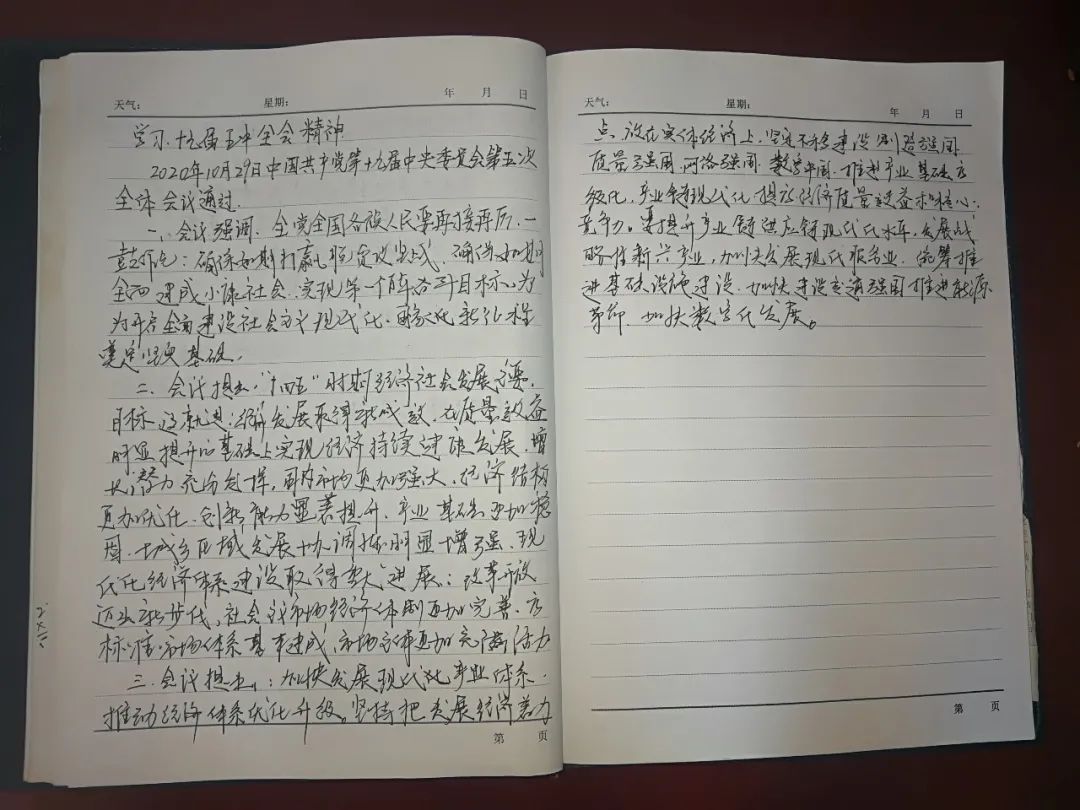 天气: 星期: 年 月 日
学习十九届五中全会精神
2020年10月29日中国共中党第十九届中央委员会第五次
全体会议通过.
一、会议强调、全党全国各族人民要再接再厉、一
鼓作气: 确保如期打赢脱贫攻坚战、确保如期
全面建成小康社会、实现第一个百年奋斗目标、为
为开启全面建设社会主义现代化国家新征程
奠定坚实基础.
二、会议提出,"十四五"时期经济社会发展主要,
目标 经济发展取得新成效、在质量效益
明显提升的基础上实现经济持续健康发展、增
长潜力充分发挥, 国内市场更加强大、经济结构
更加优化、创新能力显著提升、产业基础更加稳
固、城乡区域发展协调性明显增强、现
代化经济体系建设取得重大进展; 改革开放
迈出新步伐, 社会主义市场经济体制更加完善、高
标准市场体系基本建成, 市场主体更加充满活力
三、会议提出: 加快发展现代化产业体系.
推动经济体系优化升级。坚持把发展经济着力
第 页
天气: 星期: 年 月 日
点、放在实体经济上, 坚定不移建设制造强国
质量强国、网络强国、数字中国、推进产业基础高
级化, 产业链现代化、提高经济质量效益和核心
竞争力。要提升产业链供应链现代化水平, 发展战
略性新兴产业, 加快发展现代服务业、统筹推
进基础设施建设、加快建设交通强国 推进能源
革命、加快数字化发展。
第 页